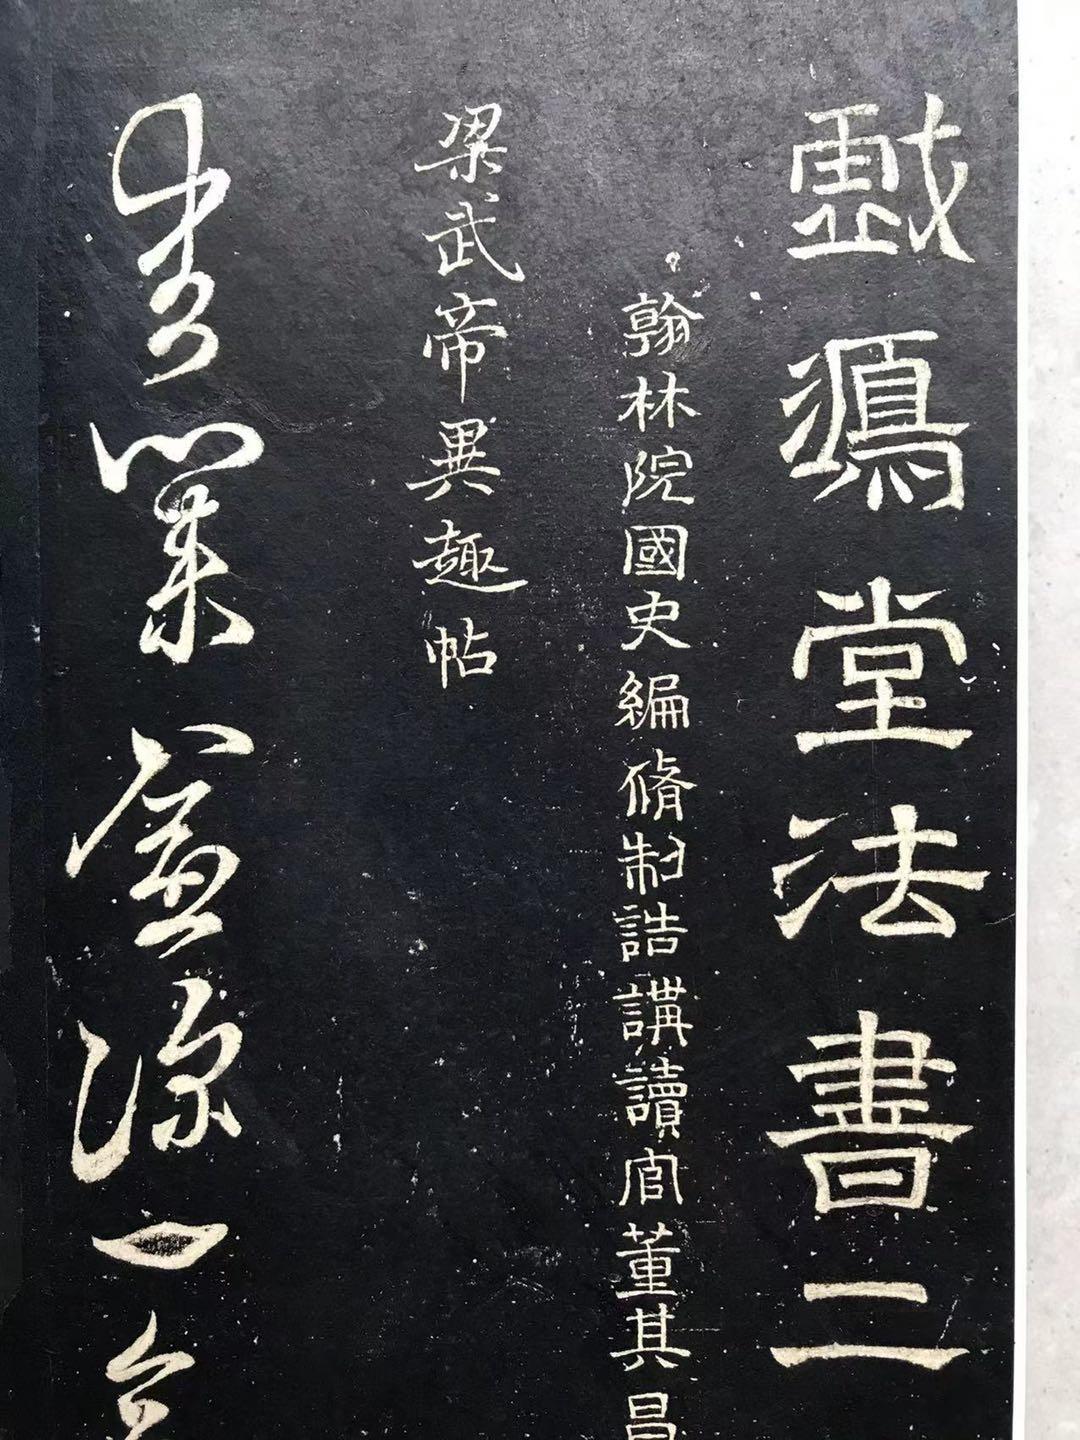 戲鴻堂法書二
翰林院國史編脩制誥講讀官董其昌
梁武帝異趣帖
愛業愈深一念